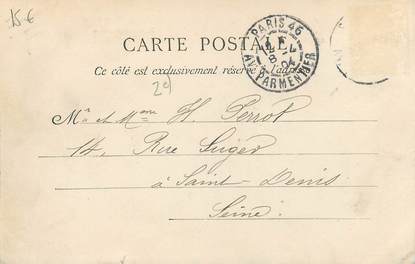 15 €
PARIS 45
8
04
AV. PARMENTIER
CARTE POSTALE
Ce côté est exclusivement réservé à l'adresse
Mr et Mme H. Perrot
14, Rue Suger
à Saint-Denis
Seine.